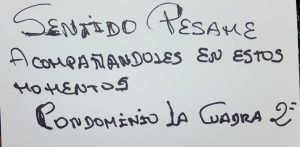 SENTIDO PESAME
ACOMPAÑANDOLES EN ESTOS
MOMENTOS
CONDOMINIO LA CUADRA 2ª